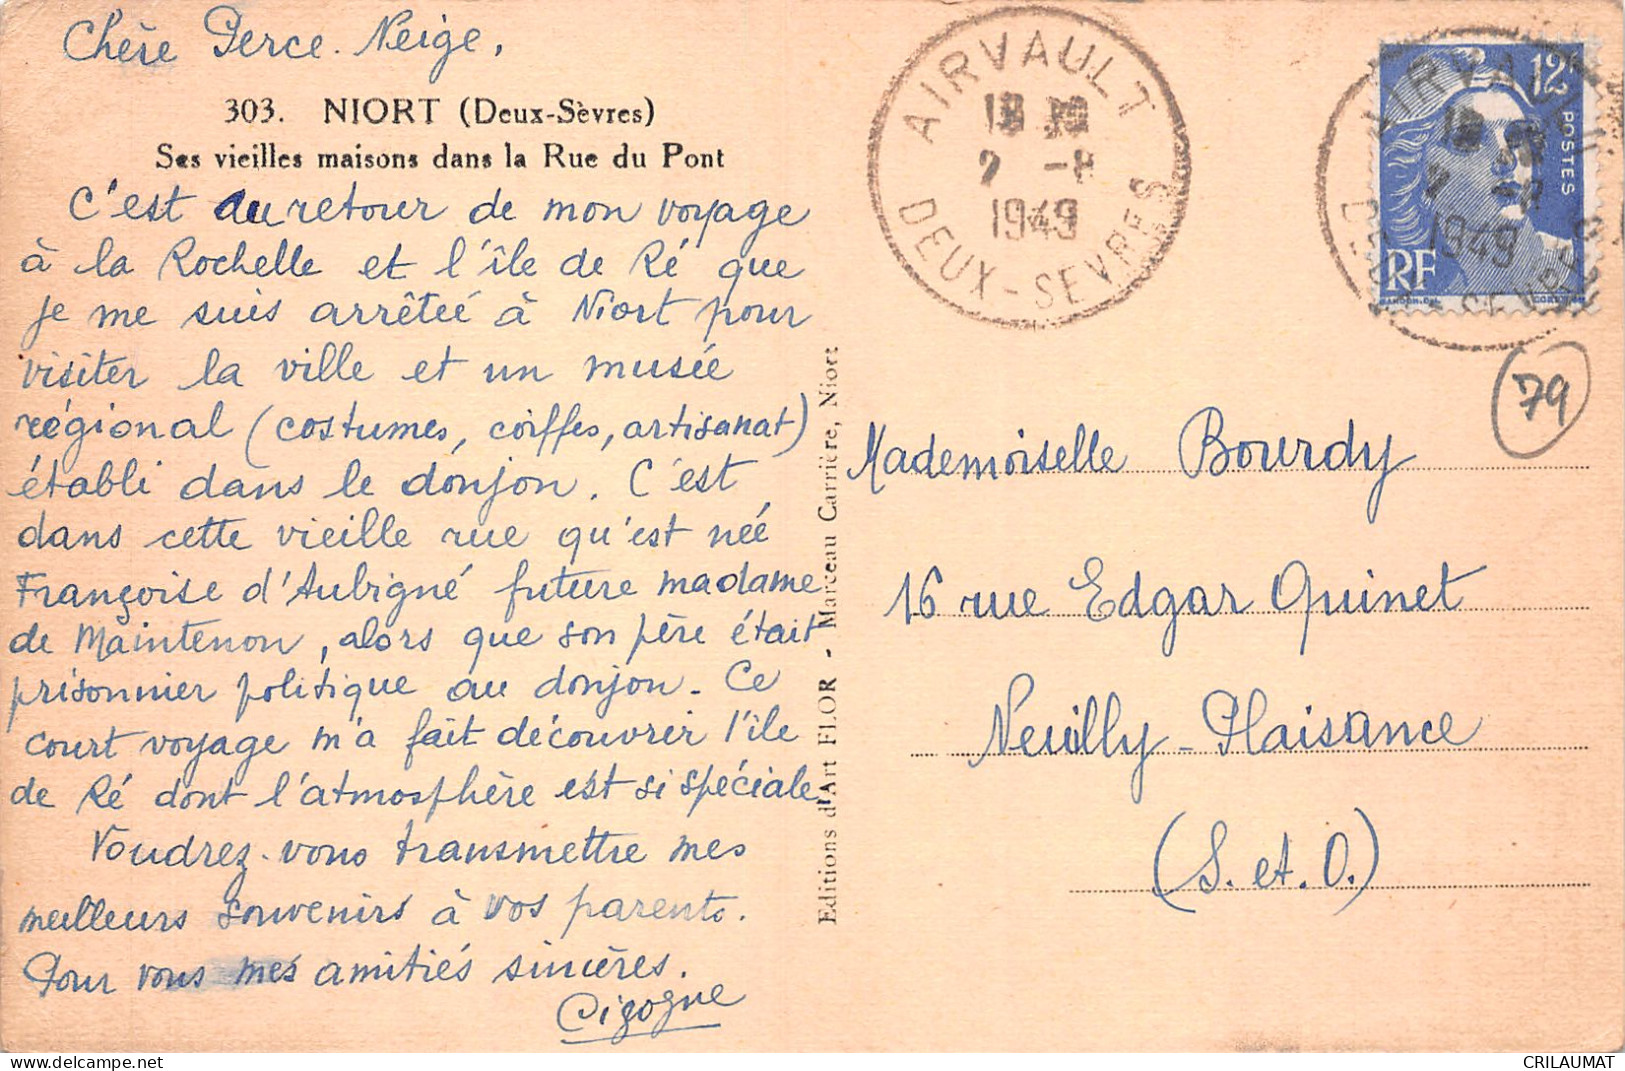 Chère Perce-Neige,
303. NIORT (Deux-Sèvres)
Ses vieilles maisons dans la Rue du Pont
C'est au retour de mon voyage
à la Rochelle et l'île de Ré que
je me suis arrêtée à Niort pour
visiter la ville et un musée
régional (costumes, coiffes, artisanat)
établi dans le donjon. C'est
dans cette vieille rue qu'est née
Françoise d'Aubigné future madame
de Maintenon, alors que son père était
prisonnier politique au donjon. Ce
court voyage m'a fait découvrir l'île
de Ré dont l'atmosphère est si spéciale
Voudrez-vous transmettre mes
meilleurs souvenirs à vos parents.
Pour vous mes amitiés sincères.
Cigogne
Editions d'Art FLOR - Marceau Carrière, Niort
AIRVAULT
1949
DEUX-SEVRES
12F
POSTES
RF
AIRVAULT
1949
DEUX-SEVRES
79
Mademoiselle Bourdy
16 rue Edgar Quinet
Neuilly-Plaisance
(S. et. O.)
CRILAUMAT